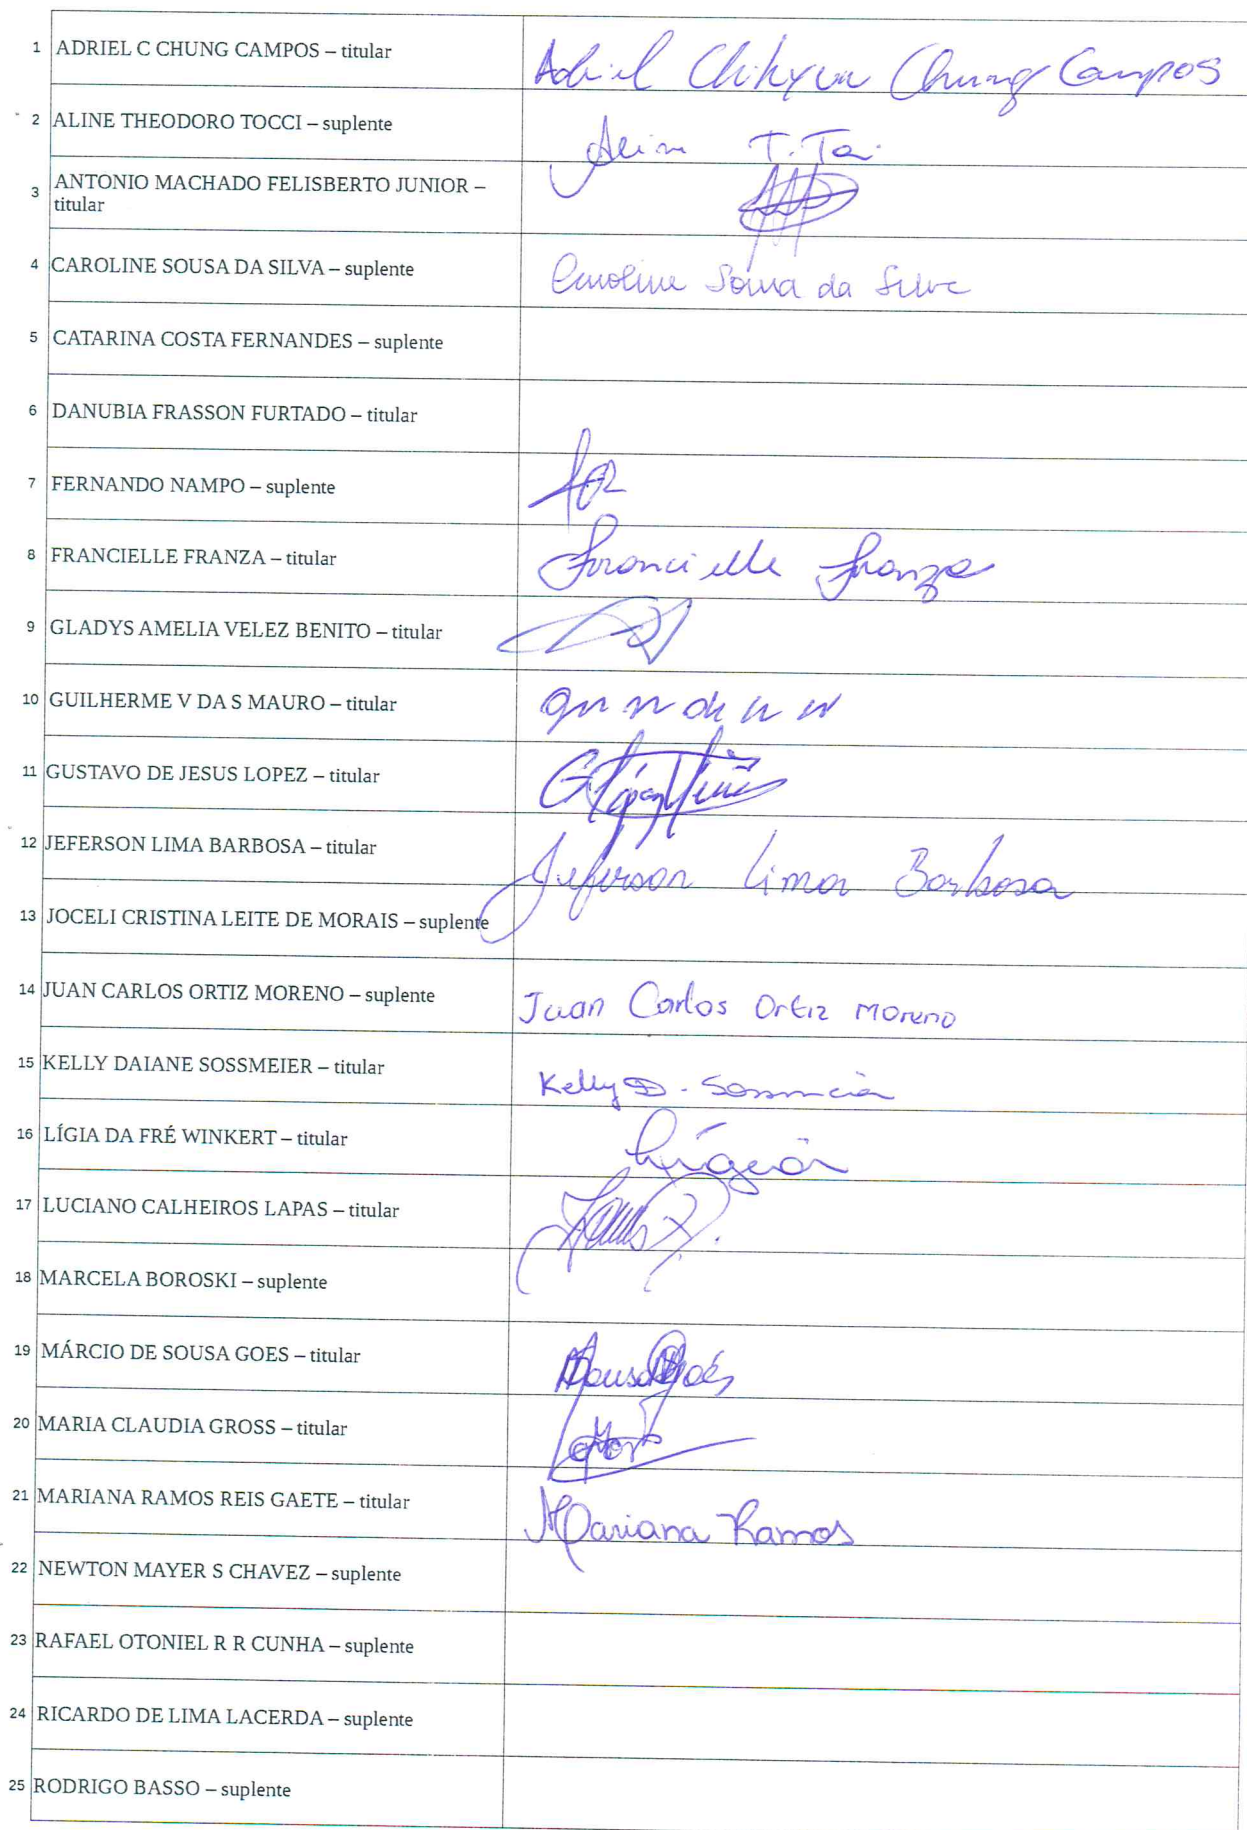 1 ADRIEL C CHUNG CAMPOS – titular Adriel Chihyun Chung Campos
2 ALINE THEODORO TOCCI – suplente Aline T. To
3 ANTONIO MACHADO FELISBERTO JUNIOR –
titular
4 CAROLINE SOUSA DA SILVA – suplente Caroline Sousa da Silva
5 CATARINA COSTA FERNANDES – suplente
6 DANUBIA FRASSON FURTADO – titular
7 FERNANDO NAMPO – suplente
8 FRANCIELLE FRANZA – titular Francielle Franza
9 GLADYS AMELIA VELEZ BENITO – titular
10 GUILHERME V DA S MAURO – titular
11 GUSTAVO DE JESUS LOPEZ – titular
12 JEFERSON LIMA BARBOSA – titular Jeferson Lima Barbosa
13 JOCELI CRISTINA LEITE DE MORAIS – suplente
14 JUAN CARLOS ORTIZ MORENO – suplente Juan Carlos Ortiz Moreno
15 KELLY DAIANE SOSSMEIER – titular Kelly D. Sossmeier
16 LÍGIA DA FRÉ WINKERT – titular Lígia
17 LUCIANO CALHEIROS LAPAS – titular
18 MARCELA BOROSKI – suplente
19 MÁRCIO DE SOUSA GOES – titular
20 MARIA CLAUDIA GROSS – titular
21 MARIANA RAMOS REIS GAETE – titular Mariana Ramos
22 NEWTON MAYER S CHAVEZ – suplente
23 RAFAEL OTONIEL R R CUNHA – suplente
24 RICARDO DE LIMA LACERDA – suplente
25 RODRIGO BASSO – suplente